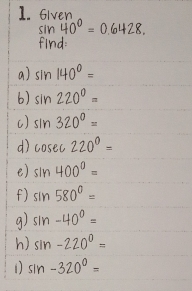 1. Given
sin 40⁰ = 0.6428,
find:
a) sin 140⁰ =
b) sin 220⁰ =
c) sin 320⁰ =
d) cosec 220⁰ =
e) sin 400⁰ =
f) sin 580⁰ =
g) sin -40⁰ =
h) sin -220⁰ =
i) sin -320⁰ =